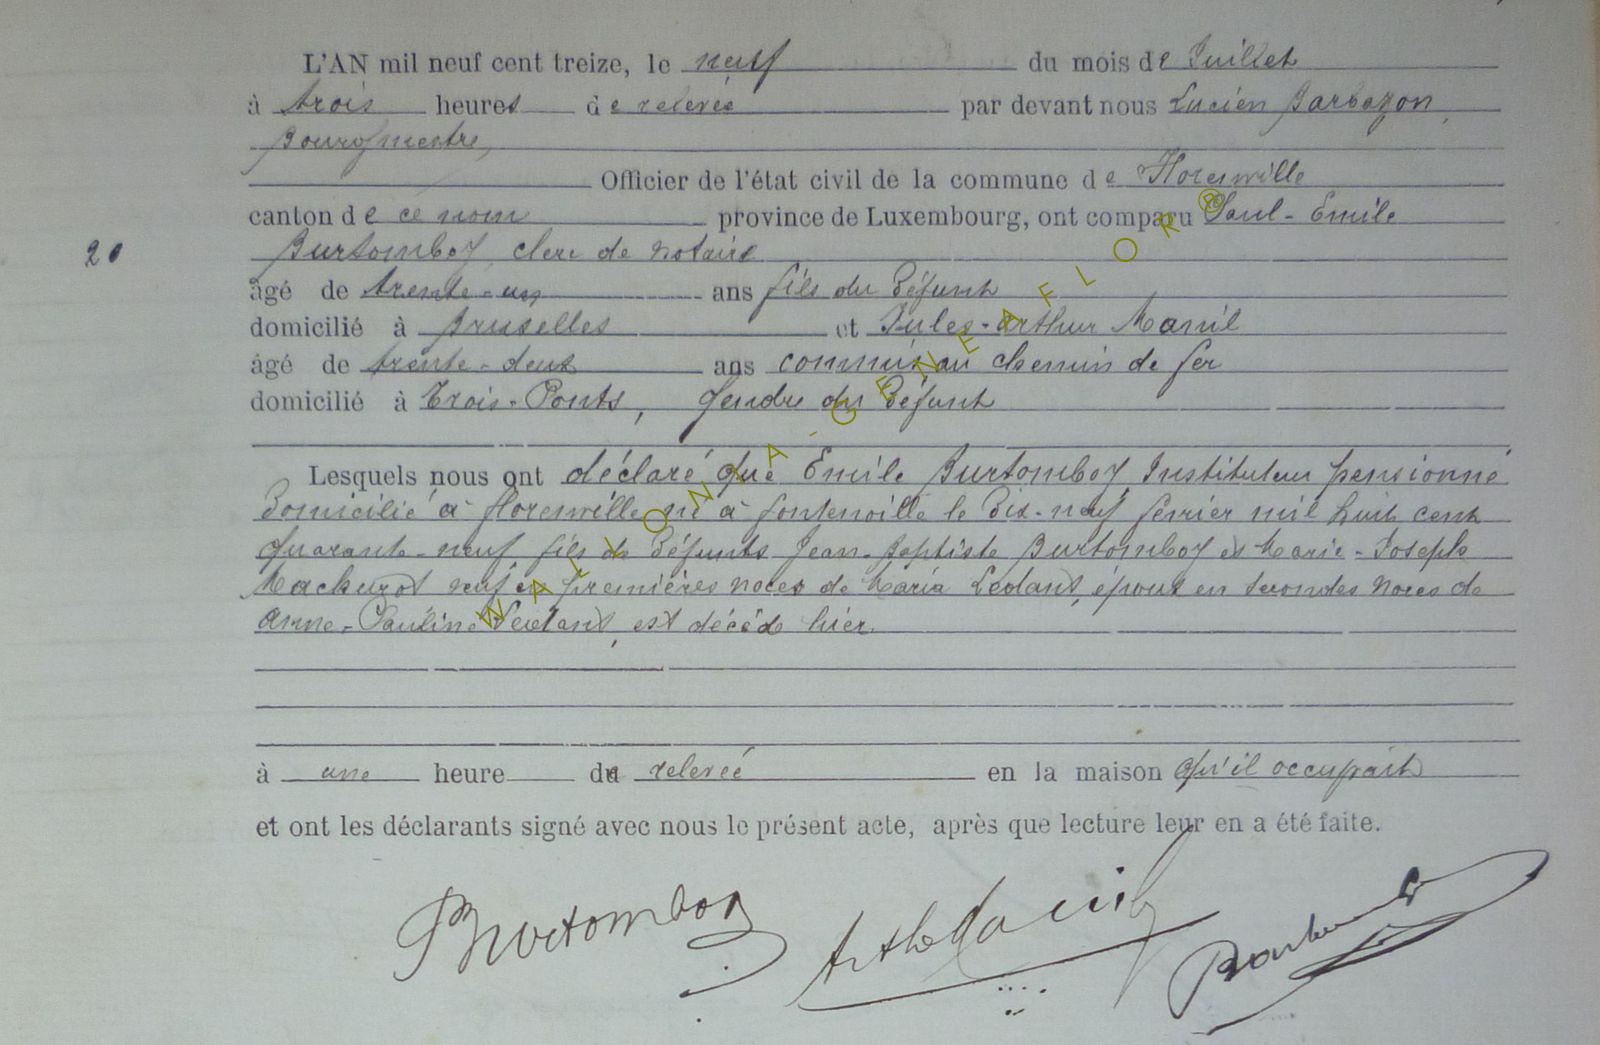 L'AN mil neuf cent treize, le neuf du mois de Juillet
à trois heures de relevée par devant nous Lucien Barbazon,
Bourgmestre,
Officier de l'état civil de la commune de Florenville
canton de ce nom province de Luxembourg, ont comparu Paul-Emile
20 Burtomboy, clerc de notaire
âgé de trente-un ans fils du Défunt
domicilié à Bruxelles et Jules-Arthur
âgé de trente-deux ans commis au chemin de fer
domicilié à Trois-Ponts, Gendre du Défunt
Lesquels nous ont déclaré que Emile Burtomboy, Instituteur pensionné
Domicilié à florenville né à fontenoille le Dix-neuf février mil huit cent
quarante-neuf fils de Défunts Jean-Baptiste Burtomboy et Marie-Joseph
veuf en premières noces de Maria époux en secondes noces de
Anne-Pauline est décédé hier.
à une heure de relevée en la maison qu'il occupait
et ont les déclarants signé avec nous le présent acte, après que lecture leur en a été faite.
Burtomboy
WALLONIA-GENEAFLOR®